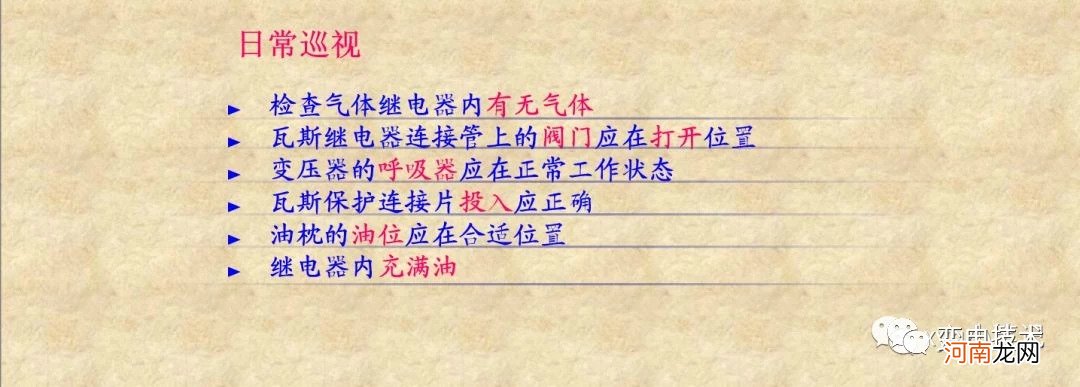 日常巡视
► 检查气体继电器内有无气体
► 瓦斯继电器连接管上的阀门应在打开位置
► 变压器的呼吸器应在正常工作状态
► 瓦斯保护连接片投入应正确
► 油枕的油位应在合适位置
► 继电器内充满油
河南龙网